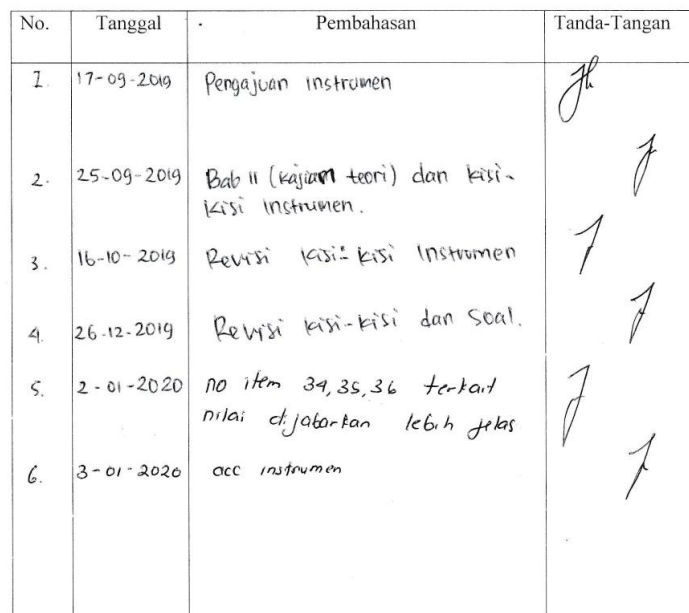 No. Tanggal Pembahasan Tanda-Tangan
1. 17-09-2019 Pengajuan instrumen
2. 25-09-2019 Bab II (kajian teori) dan kisi-
kisi instrumen.
3. 16-10-2019 Revisi kisi-kisi Instrumen
4. 26-12-2019 Revisi kisi-kisi dan soal.
5. 2-01-2020 no item 34,35,36 terkait
nilai dijabarkan lebih jelas
6. 3-01-2020 acc instrumen